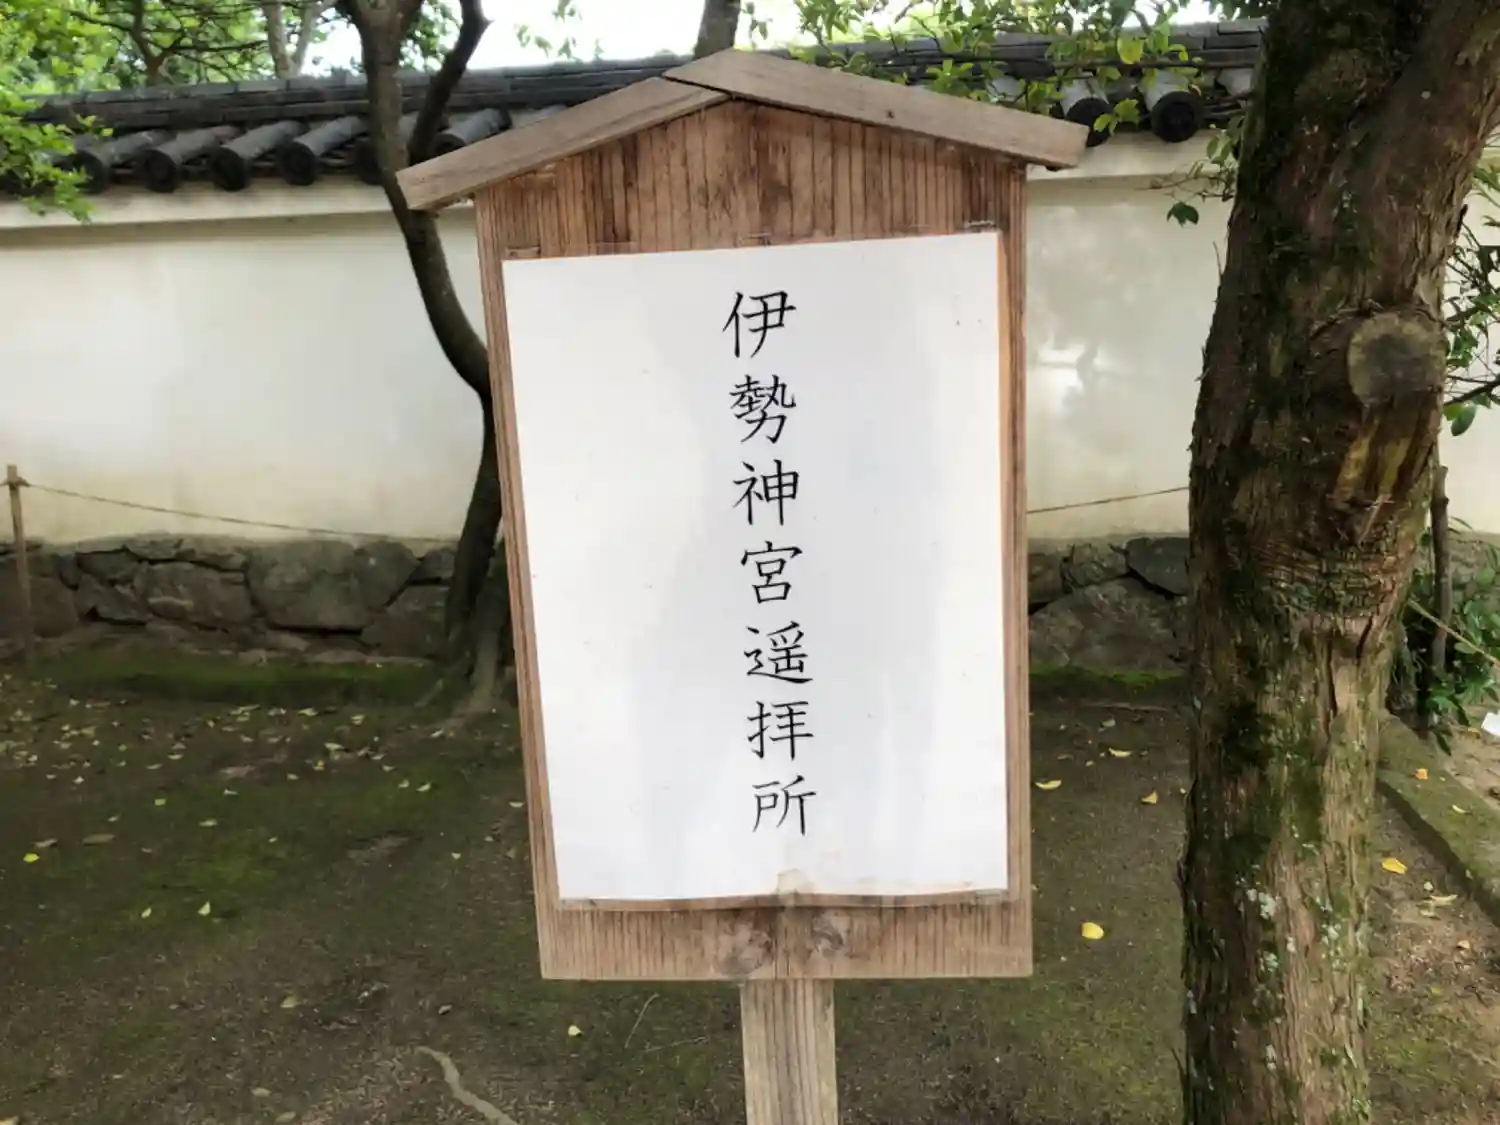 伊勢神宮遥拝所